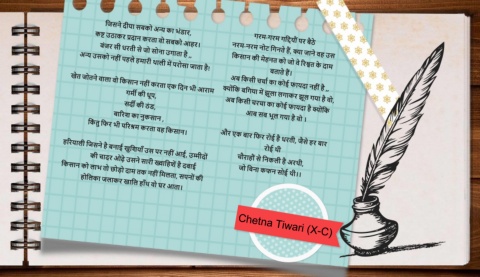 जिसने दीया सबको अन्य का भंडार,
कष्ट उठाकर प्रदान करता वो सबको आहार।
बंजर सी धरती से जो सोना उगाता है ..
अन्य उसको नहीं पहले हमारी थाली में परोसा जाता है।
खेत जोतने वाला वो किसान नहीं करता एक दिन भी आराम
गर्मी की धूप,
सर्दी की ठंड,
बारिश का नुकसान ,
किंतु फिर भी परिश्रम करता वह किसान।
हरियाली जिसने है बनाई खुशियाँ उस पर नहीं आई, उम्मीदों
की चादर ओढ़े उसने सारी ख्वाहिशें है दबाई
किसान को लाभ तो छोड़ो दाम तक नहीं मिलता, सपनों की
होलिका जलाकर खालि हाँथ वो घर आता।
गरम-गरम गद्दियों पर बैठे
नरम-नरम नोट गिनते हैं, क्या जाने वह उस
किसान की मेहनत को जो वे रिश्वत के दाम
बताते हैं।
अब किसी चर्चा का कोई फायदा नहीं है ..
क्योंकि बगिया में झूला लगाकर झूल गया है वो,
अब किसी परचा का कोई फायदा है क्योंकि
आज सब भूल गया है वो ।
और एक बार फिर रोई है धरती, जैसे हर बार
रोई थी
चौराहों से निकली है अरथी,
जो बिना कफ़न सोई थी।।
Chetna Tiwari (X-C)